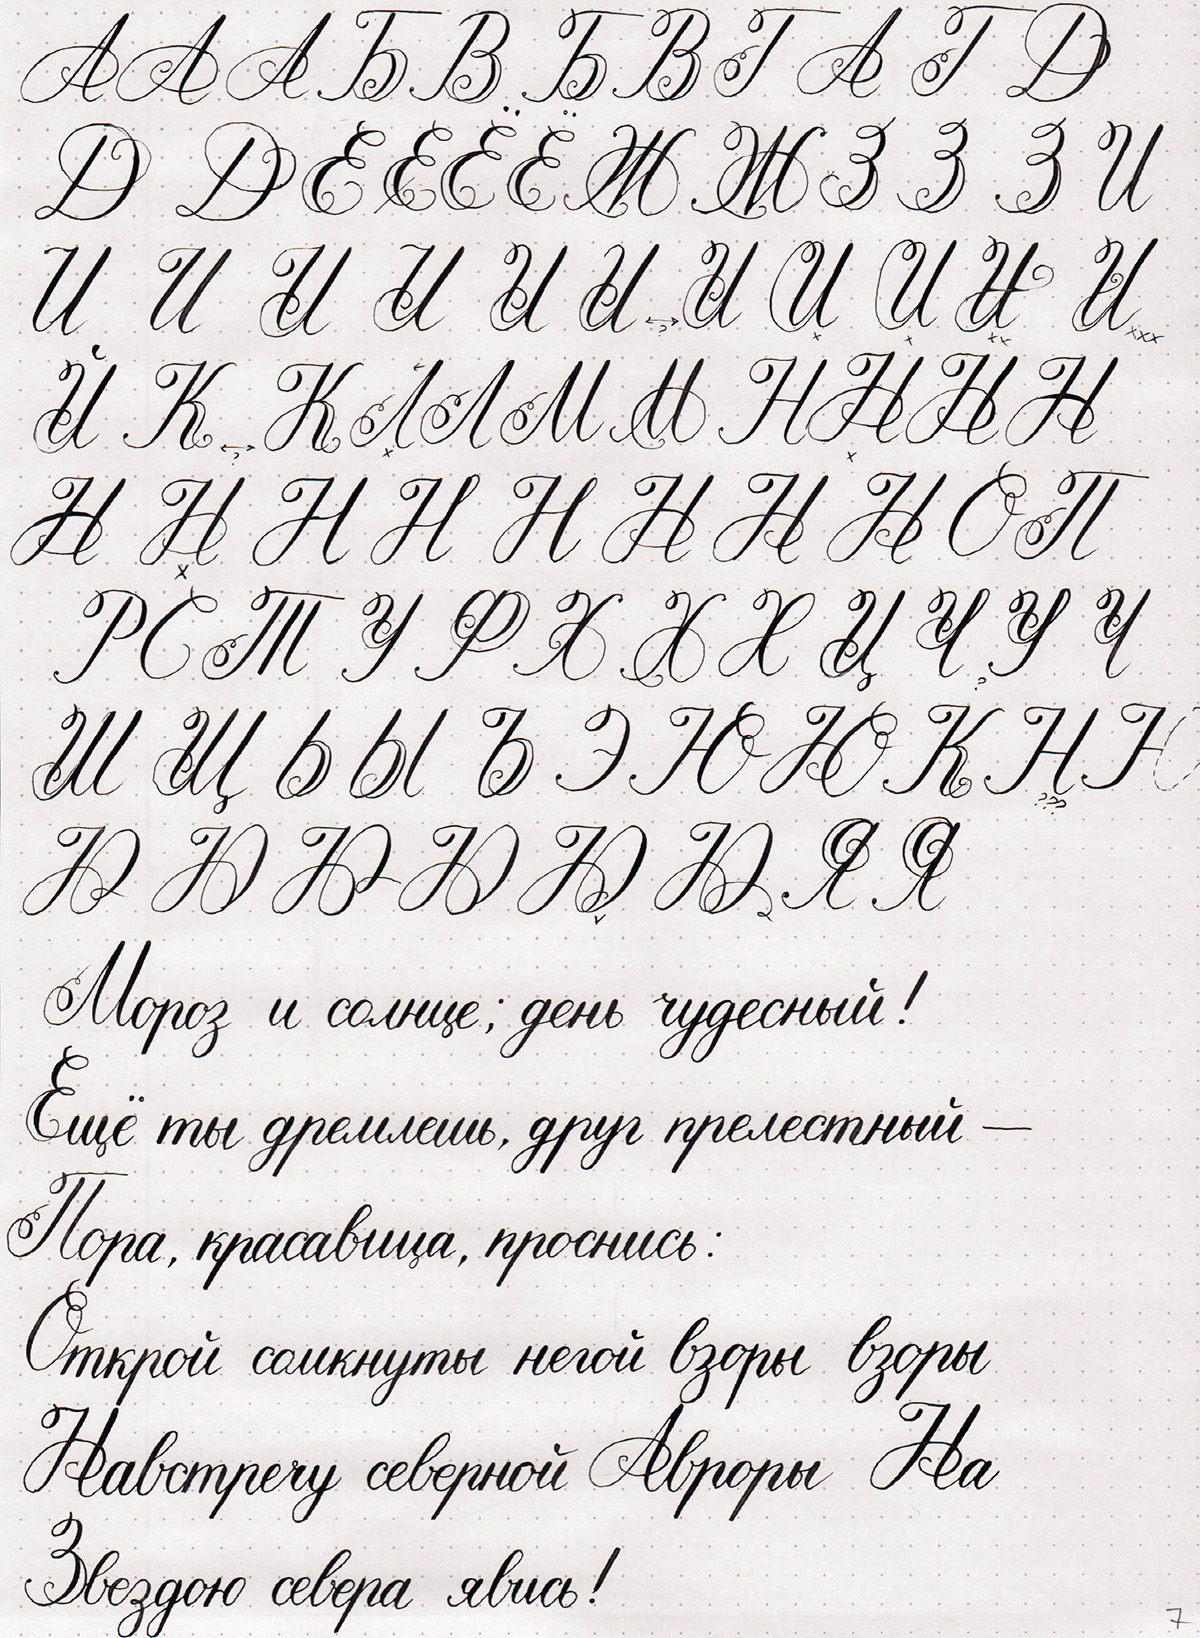 А А А Б В Б В Г А Г Д
Д Д Е Е Ё Ё Ж Ж З З З И
И И И И И И И И И И И
Й К К Л Л М М Н Н Н Н
Н Н Н Н Н Н Н Н О П
Р С Т У Ф Х Х Х Ц Ч У Ч
Ш Щ Ь Ы Ъ Э Ю Ю К Н Ю
Ю Ю Ю Ю Ю Ю Я Я
Мороз и солнце; день чудесный!
Ещё ты дремлешь, друг прелестный —
Пора, красавица, проснись:
Открой сомкнуты негой взоры взоры
Навстречу северной Авроры На
Звездою севера явись!
7